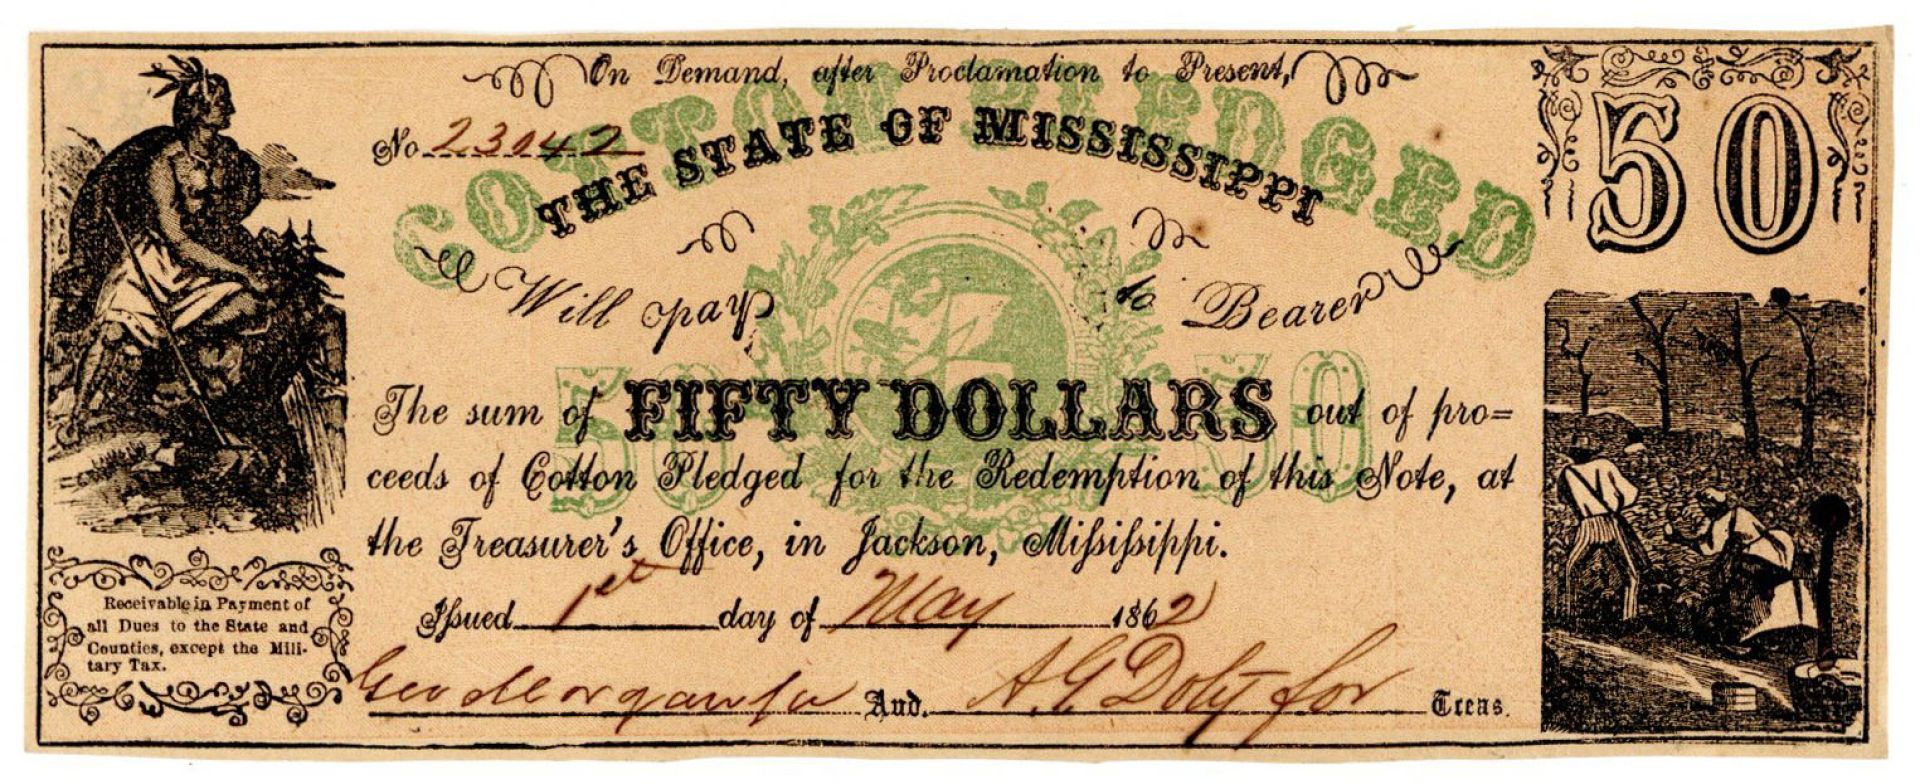 On Demand, after Proclamation to Present,
No 23042
COTTON PLEDGED
THE STATE OF MISSISSIPPI
50
Will pay to Bearer
50 50
The sum of FIFTY DOLLARS out of pro=
ceeds of Cotton Pledged for the Redemption of this Note, at
the Treasurer's Office, in Jackson, Miſsiſsippi.
Iſsued 1st day of May 1862
Receivable in Payment of
all Dues to the State and
Counties, except the Mili-
tary Tax.
Geo Morgan for Aud. A G Doty for Treas.